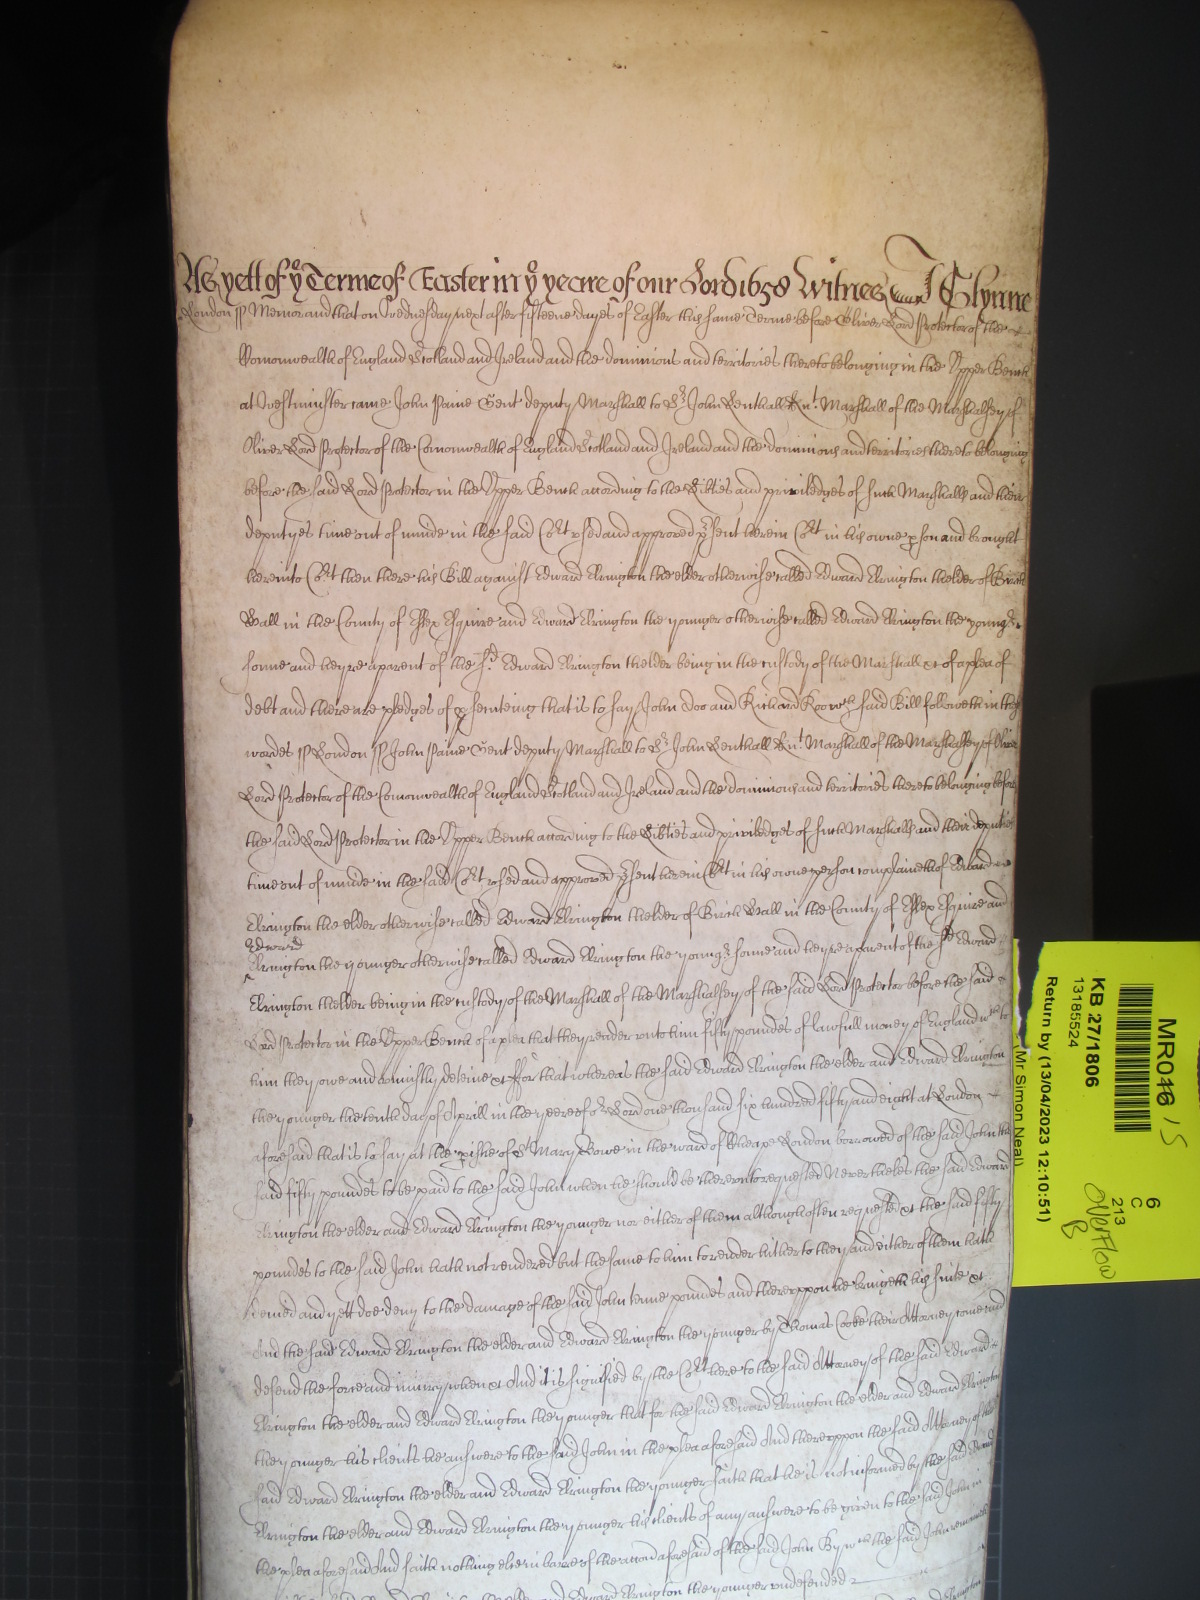 As yett of ye Terme of Easter in ye yeare of our Lord 1658 Witnes J Glynne
London ss Memorand that on Wednesday next after fifteene dayes of Easter this same Terme before Oliver Lord Protector of the
Comonwealth of England Scotland and Ireland and the dominions and territories thereto belonging in the Upper Bench
at Westminster came John Paine Gent deputy Marshall to Sr John Lenthall Knt Marshall of the Marshalsey of
Oliver Lord Protector of the Comonwealth of England Scotland and Ireland and the dominions and territories thereto belonging
before the said Lord Protector in the Upper Bench according to the Libties and priviledges of such Marshalls and their
deputyes time out of minde in the said Cort used and approved psent herein Cort in his owne pson and brought
here into Cort then there his Bill against Edward Elrington the elder otherwise called Edward Elrington thelder of Birch
Hall in the County of Essex Esquire and Edward Elrington the younger otherwise called Edward Elrington the youngr
sonne and heyre aparent of the sd Edward Elrington thelder being in the custody of the Marshall &c of a plea of
debt and there are pledges of psecuteing that is to say John Doo and Richard Roo wch said Bill followeth in these
wordes ss London ss John Paine Gent deputy Marshall to Sr John Lenthall Knt Marshall of the Marshalsey of Oliver
Lord Protector of the Comonwealth of England Scotland and Ireland and the dominions and territories thereto belonging before
the said Lord Protector in the Upper Bench according to the Libties and priviledges of such Marshalls and their deputies
time out of minde in the said Cort used and approved psent herein Cort in his owne person complaineth of Edward
Elrington the elder otherwise called Edward Elrington thelder of Birch Hall in the County of Essex Esquire and
Edward
Elrington the younger otherwise called Edward Elrington the youngr sonne and heyre aparent of the sd Edward
Elrington thelder being in the custody of the Marshall of the Marshalsey of the said Lord Protector before the said
Lord Protector in the Upper Bench of a plea that they render unto him fifty poundes of lawfull money of England wch to
him they owe and uniustly deteine &c ffor that whereas the said Edward Elrington the elder and Edward Elrington
the younger the tenth day of Aprill in the yeere of or Lord one thousand six hundred fifty and eight at London
aforesaid that is to say at the pishe of St Mary Bowe in the ward of Cheape London borrowed of the said John the
said fifty poundes to be paid to the said John when he should be thereunto requested Neverthelesse the said Edward
Elrington the elder and Edward Elrington the younger nor either of them although often requested &c the said fifty
poundes to the said John hath not rendered but the same to him to render hitherto they and either of them hath
denied and yett doe deny to the damage of the said John tenne poundes and thereuppon he bringeth his suite &c
And the said Edward Elrington the elder and Edward Elrington the younger by Thomas Cooke their Attorney come and
defend the force and iniury when &c And it is signified by the Cort here to the said Attorney of the said Edward
Elrington the elder and Edward Elrington the younger that for the said Edward Elrington the elder and Edward Elrington
the younger his clients he answere to the said John in the plea aforesaid And thereuppon the said Attorney of the
said Edward Elrington the elder and Edward Elrington the younger saith that he is not informed by the said Edward
Elrington the elder and Edward Elrington the younger his clients of any answere to be given to the said John in
the plea aforesaid And saith nothing else in barre of the accon aforesaid of the said John By wch the said John remaineth
Edward Elrington the younger undefended
MR046 15
KB 27/1806
13185524
6
C
213
Overflow
B
(Mr Simon Neal)
Return by (13/04/2023 12:10:51)